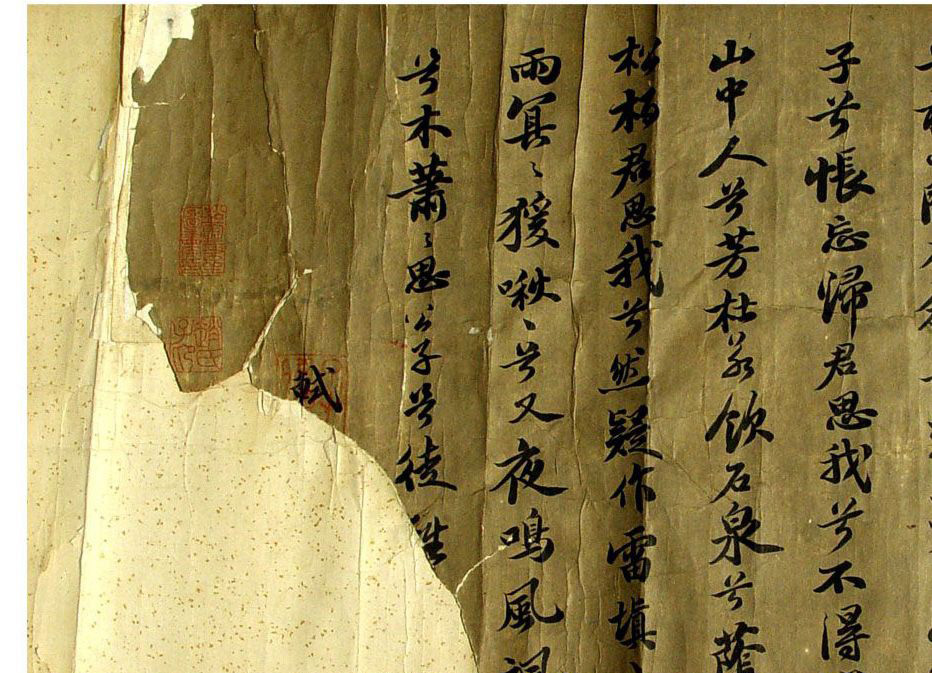 子兮悵忘歸君思我兮不得
山中人兮芳杜若飲石泉兮蔭
松栢君思我兮然疑作雷填〻
雨冥〻猨啾〻兮又夜鳴風
兮木蕭〻思公子兮徒
軾